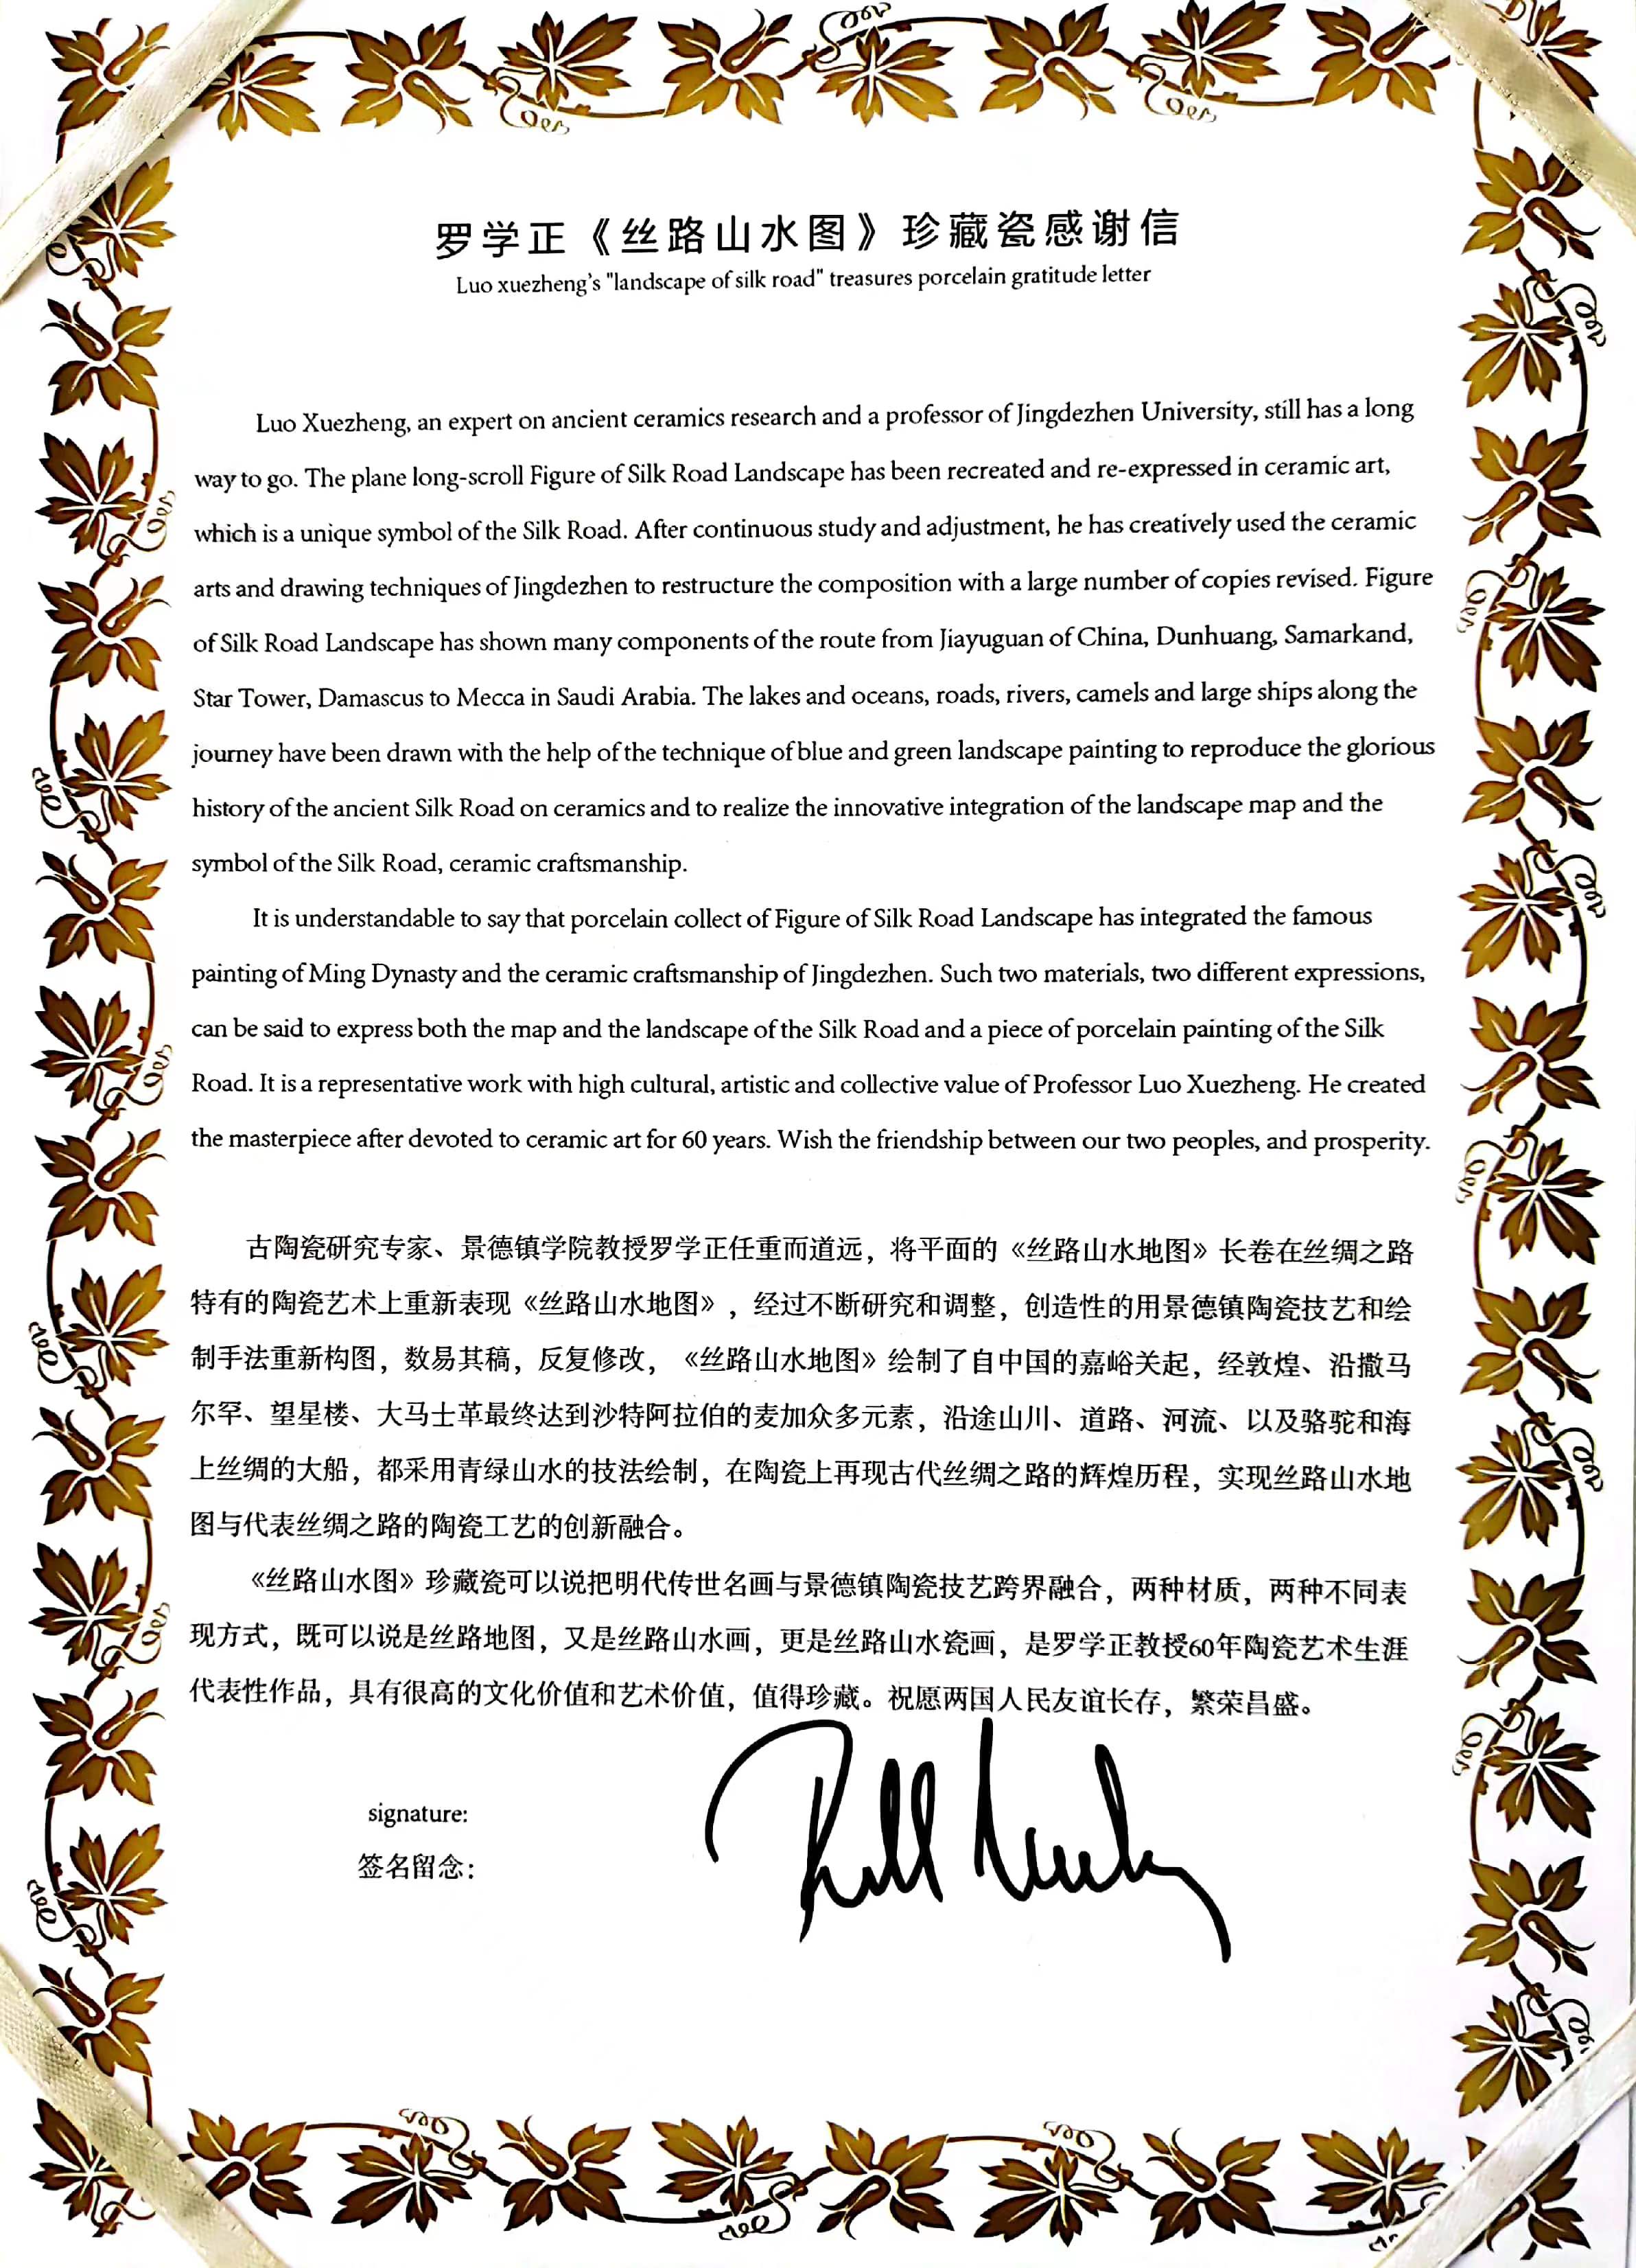 罗学正《丝路山水图》珍藏瓷感谢信
Luo xuezheng's "landscape of silk road" treasures porcelain gratitude letter
Luo Xuezheng, an expert on ancient ceramics research and a professor of Jingdezhen University, still has a long
way to go. The plane long-scroll Figure of Silk Road Landscape has been recreated and re-expressed in ceramic art,
which is a unique symbol of the Silk Road. After continuous study and adjustment, he has creatively used the ceramic
arts and drawing techniques of Jingdezhen to restructure the composition with a large number of copies revised. Figure
of Silk Road Landscape has shown many components of the route from Jiayuguan of China, Dunhuang, Samarkand,
Star Tower, Damascus to Mecca in Saudi Arabia. The lakes and oceans, roads, rivers, camels and large ships along the
journey have been drawn with the help of the technique of blue and green landscape painting to reproduce the glorious
history of the ancient Silk Road on ceramics and to realize the innovative integration of the landscape map and the
symbol of the Silk Road, ceramic craftsmanship.
It is understandable to say that porcelain collect of Figure of Silk Road Landscape has integrated the famous
painting of Ming Dynasty and the ceramic craftsmanship of Jingdezhen. Such two materials, two different expressions,
can be said to express both the map and the landscape of the Silk Road and a piece of porcelain painting of the Silk
Road. It is a representative work with high cultural, artistic and collective value of Professor Luo Xuezheng. He created
the masterpiece after devoted to ceramic art for 60 years. Wish the friendship between our two peoples, and prosperity.
古陶瓷研究专家、景德镇学院教授罗学正任重而道远，将平面的《丝路山水地图》长卷在丝绸之路
特有的陶瓷艺术上重新表现《丝路山水地图》，经过不断研究和调整，创造性的用景德镇陶瓷技艺和绘
制手法重新构图，数易其稿，反复修改，《丝路山水地图》绘制了自中国的嘉峪关起，经敦煌、沿撒马
尔罕、望星楼、大马士革最终达到沙特阿拉伯的麦加众多元素，沿途山川、道路、河流、以及骆驼和海
上丝绸的大船，都采用青绿山水的技法绘制，在陶瓷上再现古代丝绸之路的辉煌历程，实现丝路山水地
图与代表丝绸之路的陶瓷工艺的创新融合。
《丝路山水图》珍藏瓷可以说把明代传世名画与景德镇陶瓷技艺跨界融合，两种材质，两种不同表
现方式，既可以说是丝路地图，又是丝路山水画，更是丝路山水瓷画，是罗学正教授60年陶瓷艺术生涯
代表性作品，具有很高的文化价值和艺术价值，值得珍藏。祝愿两国人民友谊长存，繁荣昌盛。
signature:
签名留念：